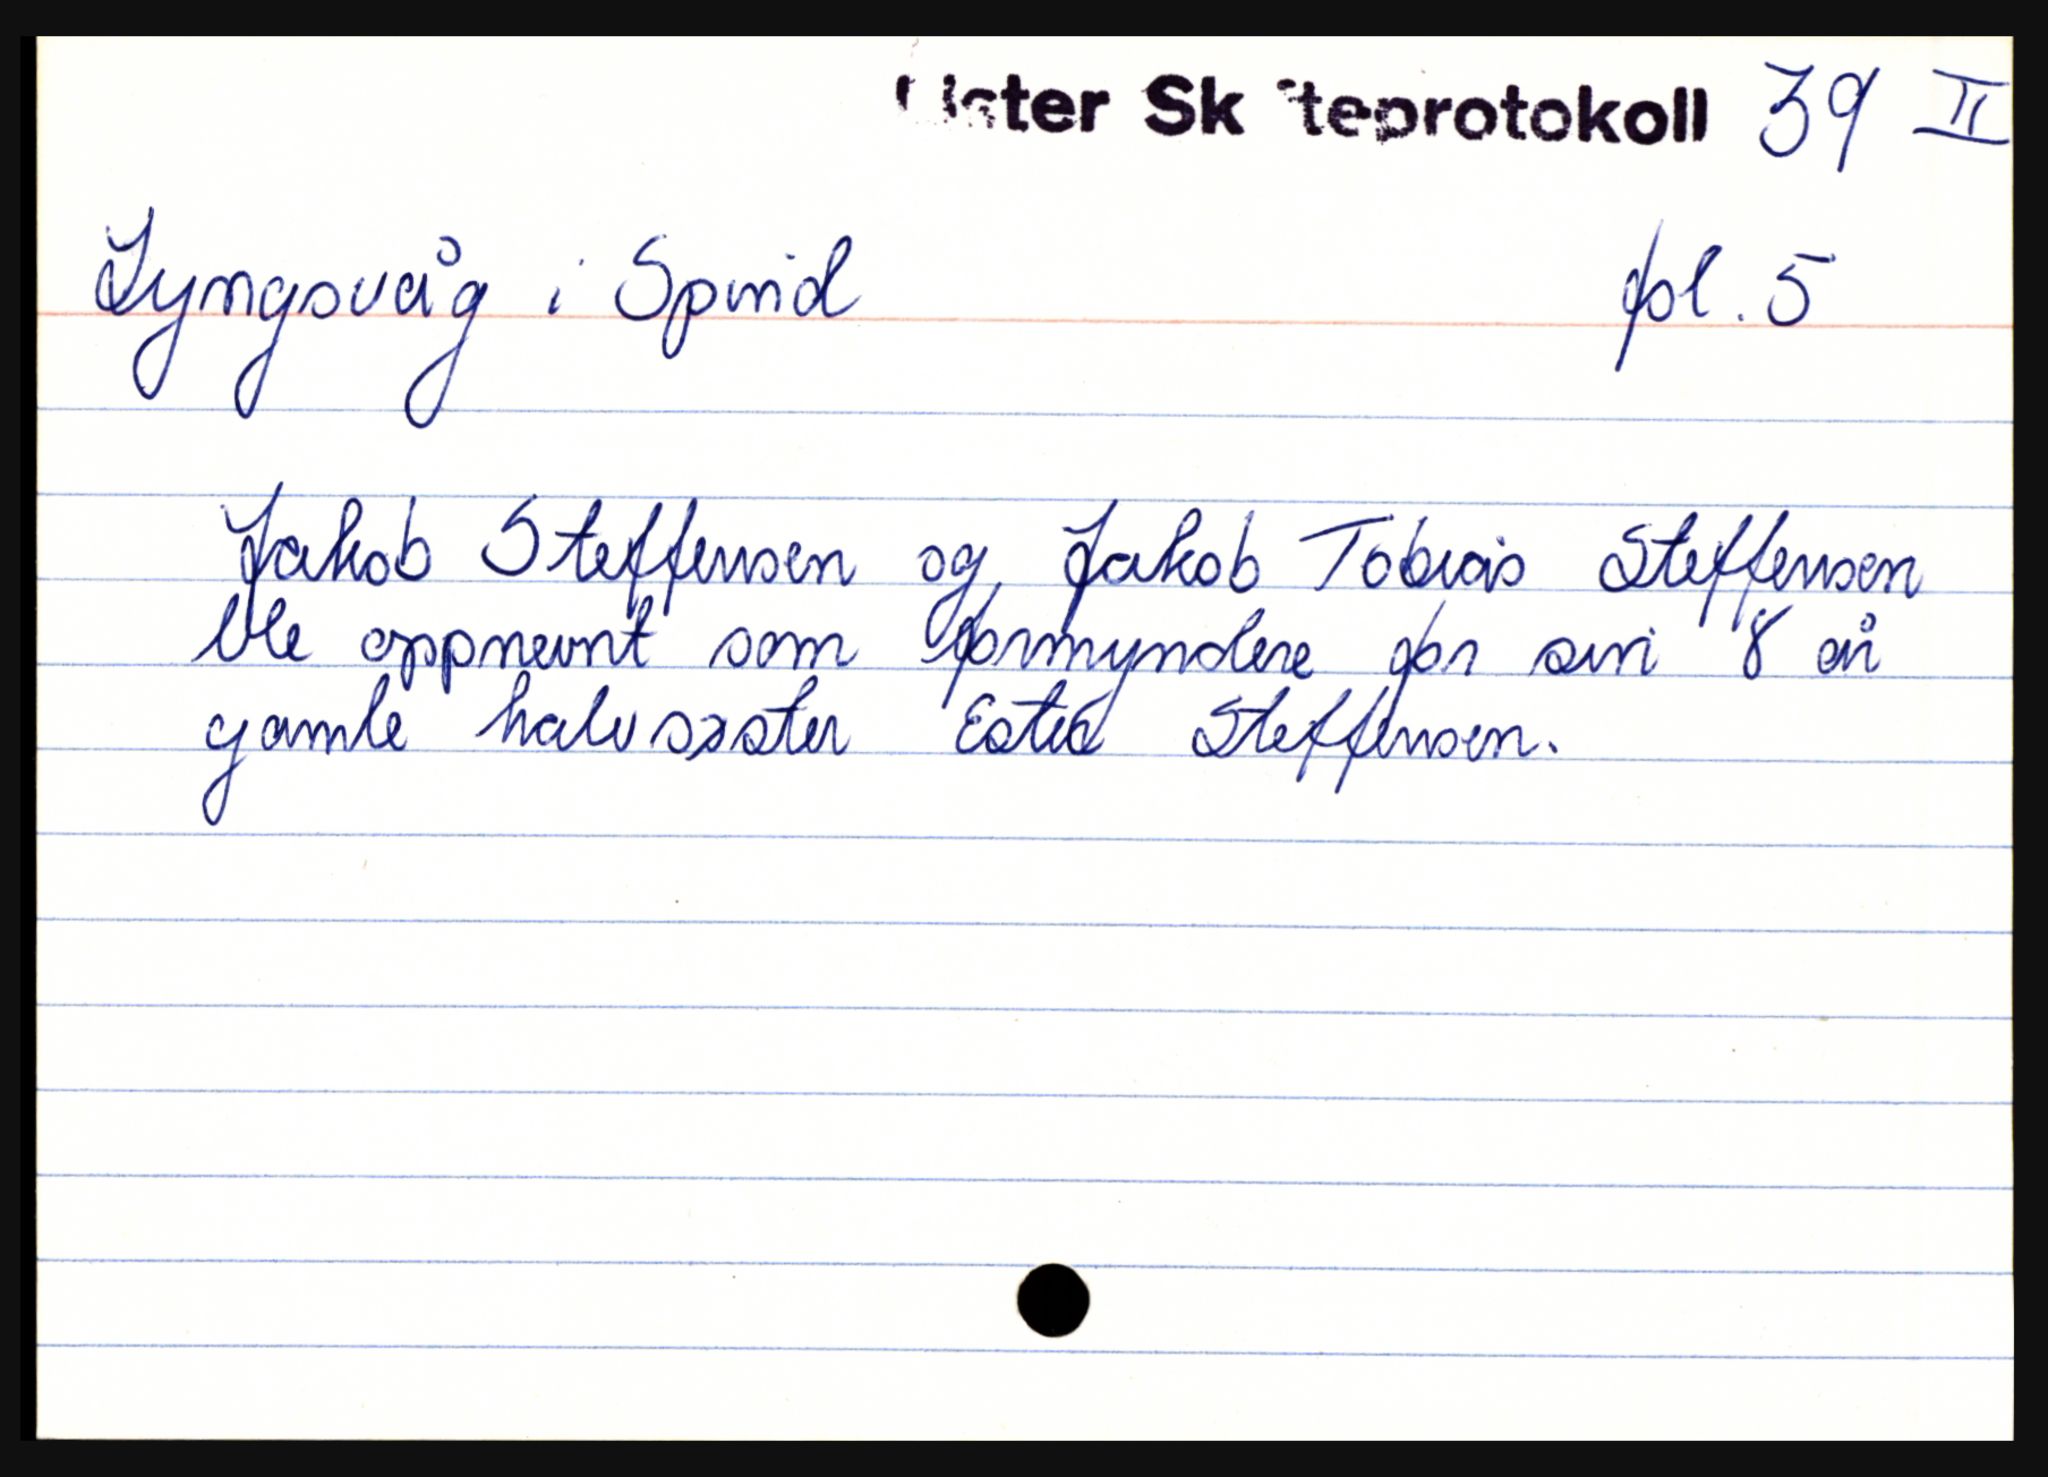 Lister Skifteprotokoll 39 II
Lyngsvåg i Spind fol. 5
Jakob Steffensen og Jakob Tobias Steffensen
ble oppnevnt som formyndere for sin 8 år
gamle halvsøster Steffensen.